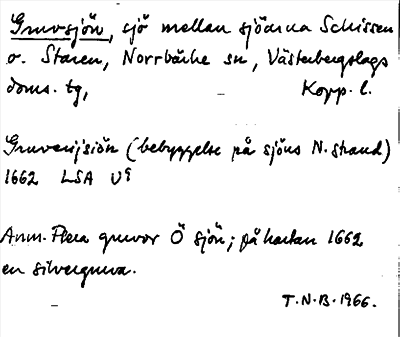 Gruvsjön, sjö mellan sjöarna Schissen
o. Staren, Norrbärke sn, Västerbergslags
doms. tg, Kopp. l.
Gruvesjsiön (bebyggelse på sjöns N. strand)
1662 LSA U9
Anm. Flera gruvor Ö sjön; på kartan 1662
en silvergruva.
T.N.B. 1966.